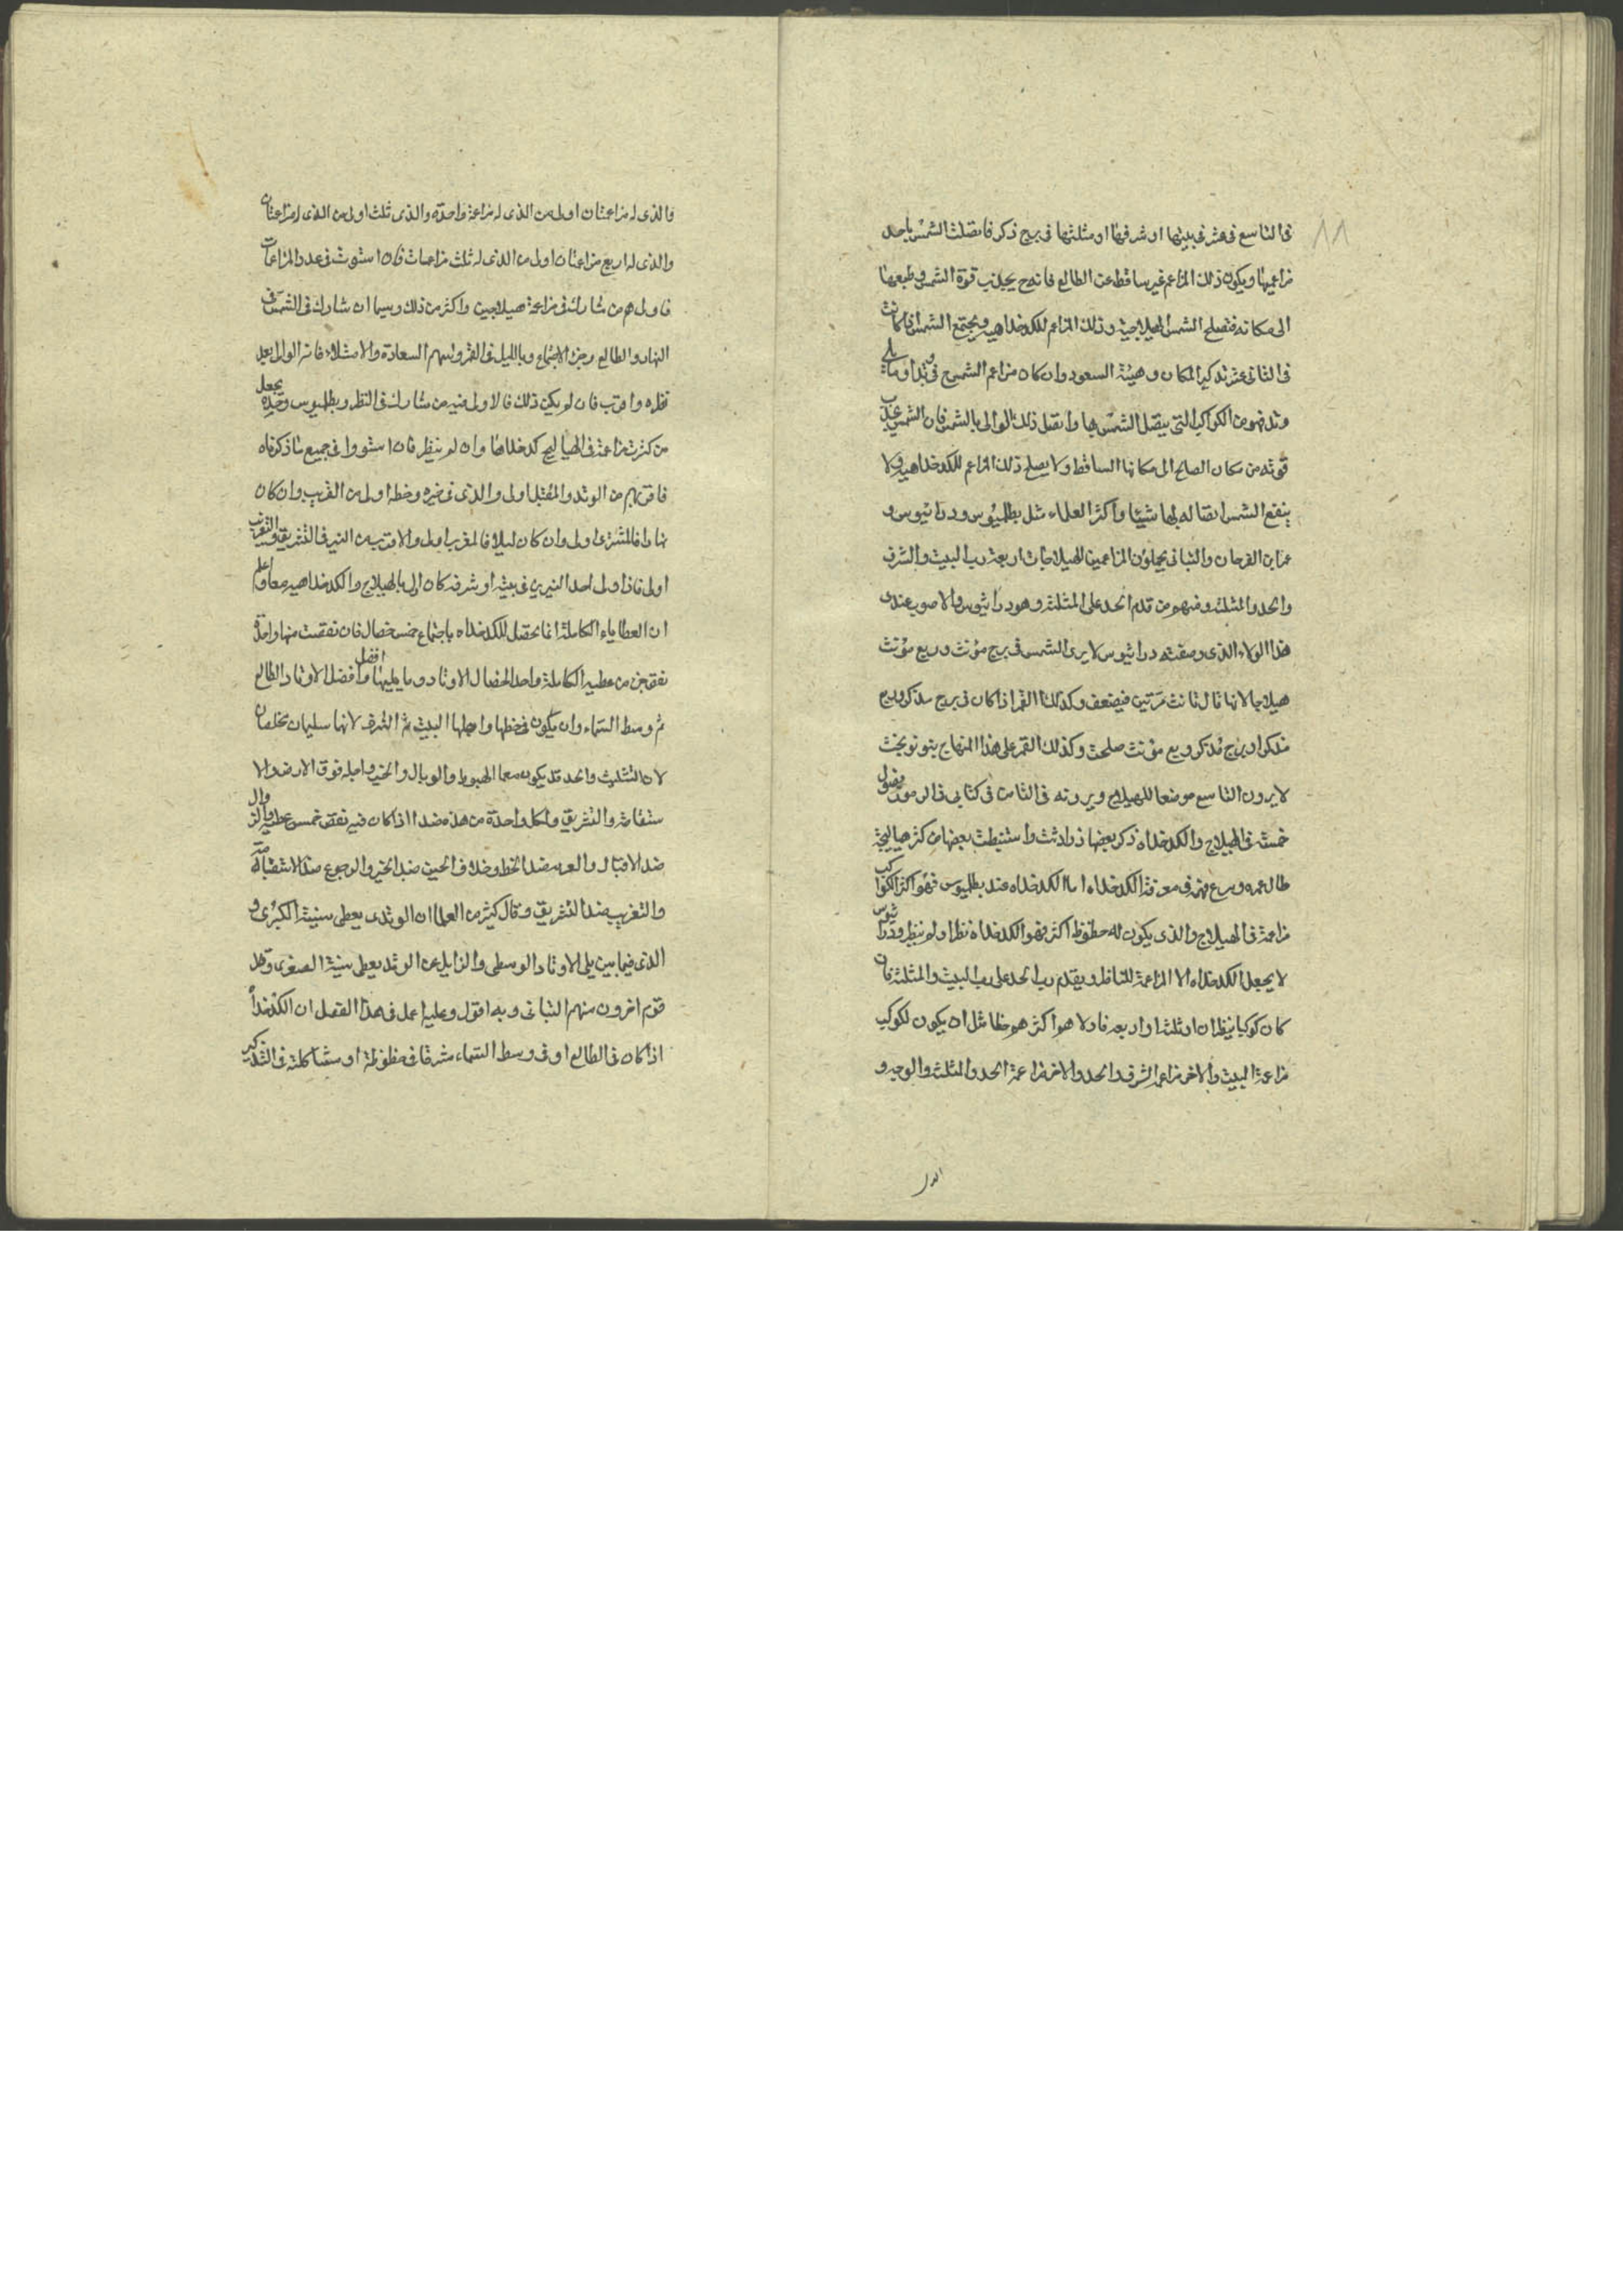 ٨٨
فى التاسع فى عشر فى بيتها او شرفها او مثلثها فى برج ذكر فاتصلت الشمس باحد
مزاعميها ويكون ذلك المزاعم غير ساقط عن الطالع فانه ح يجذب قوة الشمس وطبعها
الى مكانه فتصلح الشمس للهيلاجية وذلك المزاعم للكدخداهية ويجتمع الشمس اذا كانت
فى الثانى عشر تذكير المكان وهيئة السعود وان كان مزاعم الشمس ح فى وتد او ما يلى
وتد فهو من الكواكب التى يتصل الشمس بها واتصل ذلك الوالى بالشمس فان الشمس يجذب
قوته من مكان الصالح الى مكانها الساقط ولا يصلح ذلك المزاعم للكدخداهية ولا
ينفع الشمس اتصاله بها شيئا واكثر العلماء مثل بطلميوس ودراثيوس و
عمر ابن الفرخان والتبانى يجعلون المزاعمين للهيلاجات اربعة رب البيت والشرف
والحد والمثلثة ومنهم من قدم الحد على المثلثة وهو دراثيوس والاصوب عندى
هذا الولاء الذى وصفته دراثيوس لا يرى الشمس فى برج مؤنث وربع مؤنث
هيلاجا لانها قال تانث مرتين فيضعف وكذلك القمر اذا كان فى برج مذكر وربع
مذكر او برج مذكر وربع مؤنث صلحت وكذلك القمر على هذا المنهاج بنو نوبخت
لا يرون التاسع موضعا للهيلاج ويرونه فى الثامن فى كتابى فى الرموز فصول
خمسة فى الهيلاج والكدخداه ذكر بعضها زرادشت واستنبطت بعضها من كثر هياليجه
طال عمره وسرع فهم فى معرفة الكدخداه اما الكدخداه عند بطلميوس فهو اكثر الكواكب
مزاعمة فى الهيلاج والذى يكون له حظوظ اكثر فهو الكدخداه نظر او لم ينظر ودراثيوس
لا يجعل الكدخداه الا المزاعمة للناظر ويقدم رب الحد على رب البيت والمثلثة فان
كان كوكبا ينظران او ثلثة او اربعة فاولاهم اكثرهم حظا مثل ان يكون لكوكب
مزاعمة البيت والاخر مزاعم الشرف والحد والاخر مزاعمة الحد والمثلثة والوجه و
والذى له مزاعمتان اولى من الذى له مزاعمة واحدة والذى ثلث اولى من الذى له مزاعمتان
والذى له اربع مزاعمات اولى من الذى له ثلث مزاعمات فان استوت فى عدد المزاعمات
فاولهم من شارك فى مزاعمة هيلاجين واكثر من ذلك وسيما ان شارك فى الشمس فى
النهار والطالع وجزء الاجتماع وبالليل فى القمر وسهم السعادة والامتلاء فانه الوالى بعد
نظره واقرب فان لم يكن ذلك فالاولى فيه من شارك فى النظر وبطلميوس وحده يجعل
من كثرت مزاعمة فى الهياليج كدخداها وان لم ينظر فان استووا فى جميع ما ذكرناه
فاقربهم من الوتد والمقبل اولى والذى فى حيزه وحظه اولى من الغريب وان كان
نهارا فالمشرق اولى وان كان ليلا فالمغرب اولى والاقرب من النير فى التشريق والتغريب
اولى فاذا ولى احد النيرين فى بيته او شرفه كان اولى بالهيلاج والكدخداهية معا واعلم
ان العطاياء الكاملة انما تحصل للكدخداه باجتماع خمس خصال فان نقصت منها واحدة
نقص جزء من عطية الكاملة واحد الخصال الاوتاد وما يليها وافضل الاوتاد الطالع
افضل
ثم وسط السماء وان يكون فى حظها واجلها البيت ثم الشرف لانها سليمان مخلصان
لان التثليث والحد قد يكون معها الهبوط والوبال والحيز واجله فوق الارض والا
ستقامة والتشريق ولكل واحدة من هذه ضد اذا كان فيه نقص خمس عطيه والزوال
ضد الاقبال والغربة ضد الحظ وخلاف الحيز ضد الحيز والرجوع ضد الاستقامة
والتغريب ضد التشريق وقال كثير من العلما ان الوتدى يعطى سنيه الكبرى و
الذى فيما بين يلى الاوتاد الوسطى والزايل عن الوتد يعطى سنيه الصغرى وقد
قوم اخرون منهم التبانى وبه اقول وعليه اعمل فى هذا الفصل ان الكدخداه
اذا كان فى الطالع او فى وسط السماء مشرقا فى حظوظه او مشاكلته فى التذكير